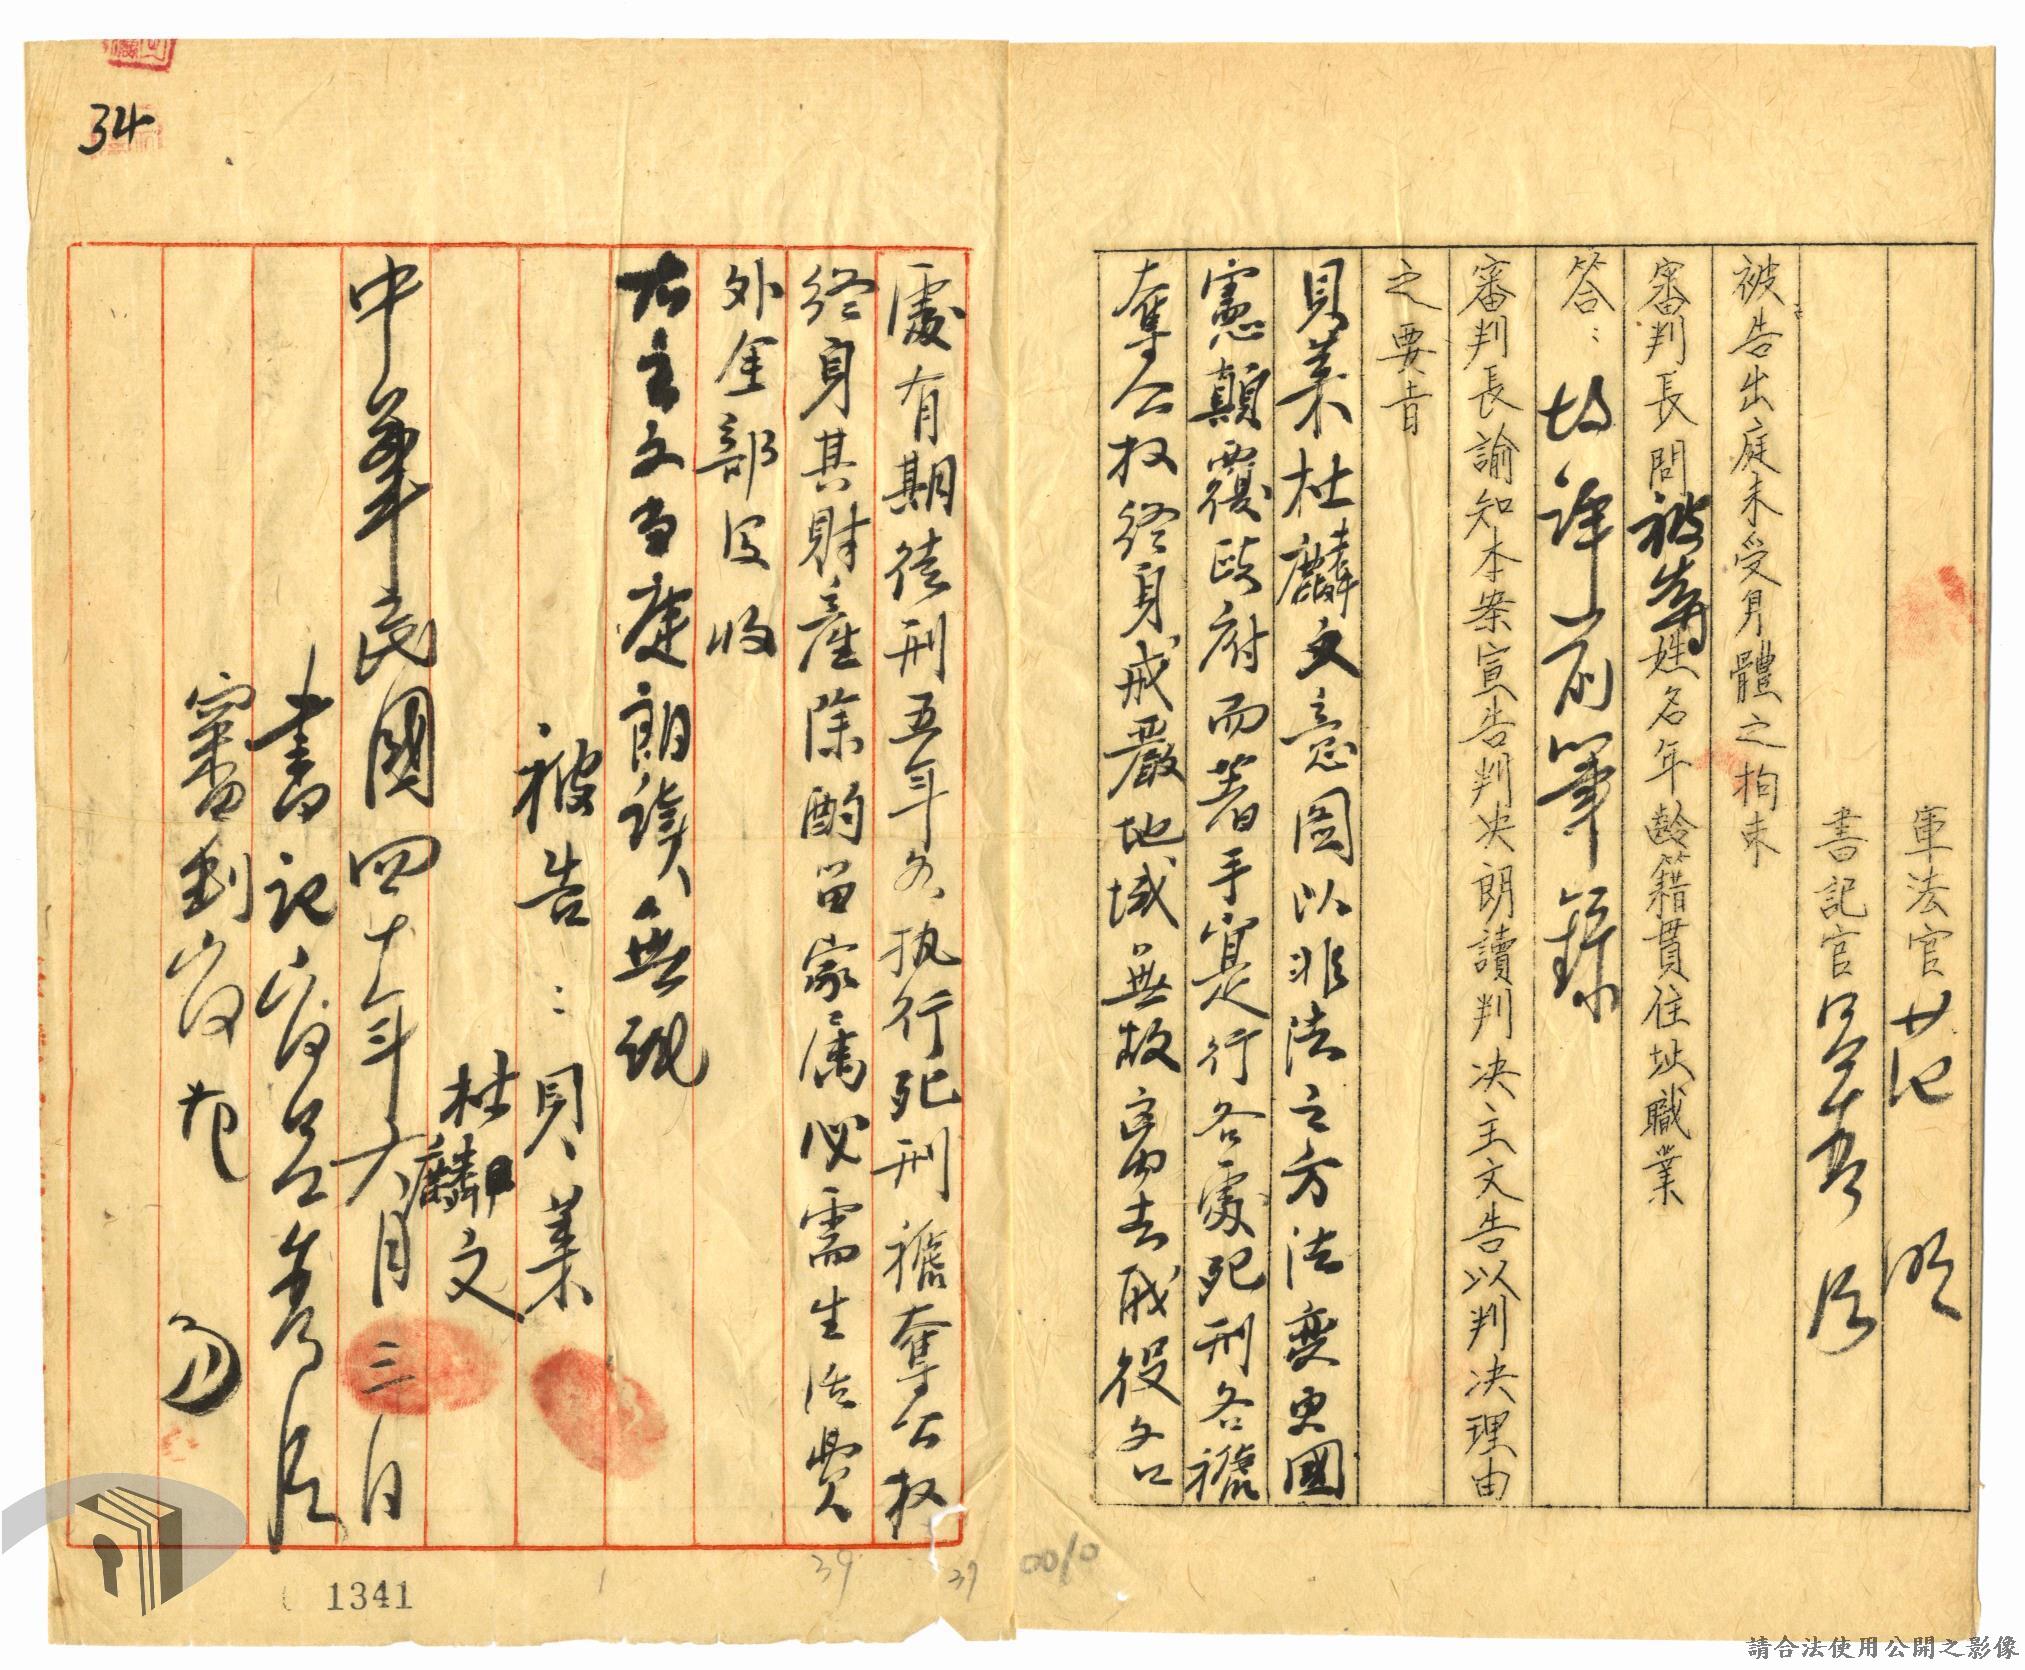 軍法官 范 明
書記官
被告出庭未受身體之拘束
審判長問被告等姓名年齡籍貫住址職業
答：均詳前筆錄
審判長諭知本案宣告判決朗讀判決主文告以判決理由
之要旨
貝萊杜麟文意圖以非法之方法變更國
憲顛覆政府而着手實行各處死刑各褫
奪公权終身戒嚴地域無故離去職役各
處有期徒刑五年各执行死刑褫奪公权
終身其財產除酌留家属必需生活費
外全部没收
右主文当庭朗讀無訛
被告：貝萊
杜麟文
中華民國四十年六月三日
書記官
審判官 范 明
34
1341
39
37
0010
請合法使用公開之影像